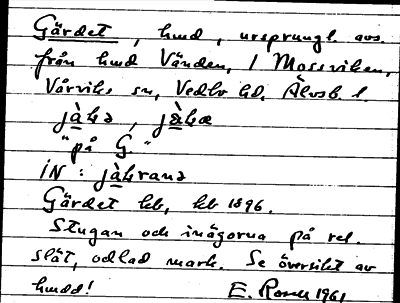 Gärdet, hmd, ursprungl. avs.
från hmd Vänden, / Mossviken,
Vårviks sn, Vedbo hd, Älvsb. l.
jàʟ̣ə, jæ̀ʟ̣æ
"på G."
iN: jàʟ̣rana
Gärdet hb, hb 1896.
Stugan och inägorna på rel.
slät, odlad mark. Se översikt av
hmdd!
E. Rosell 1961